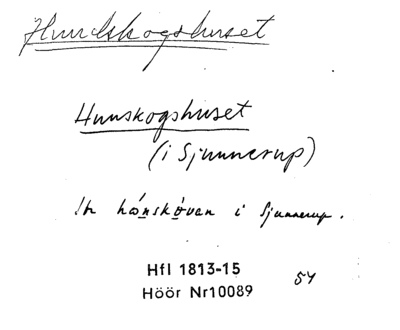 Hundskogshuset
Hunskogshuset
(i Sjunnerup)
hǽnskóvan i Sjunnerup.
Hfl 1813-15
Höör Nr10089
54